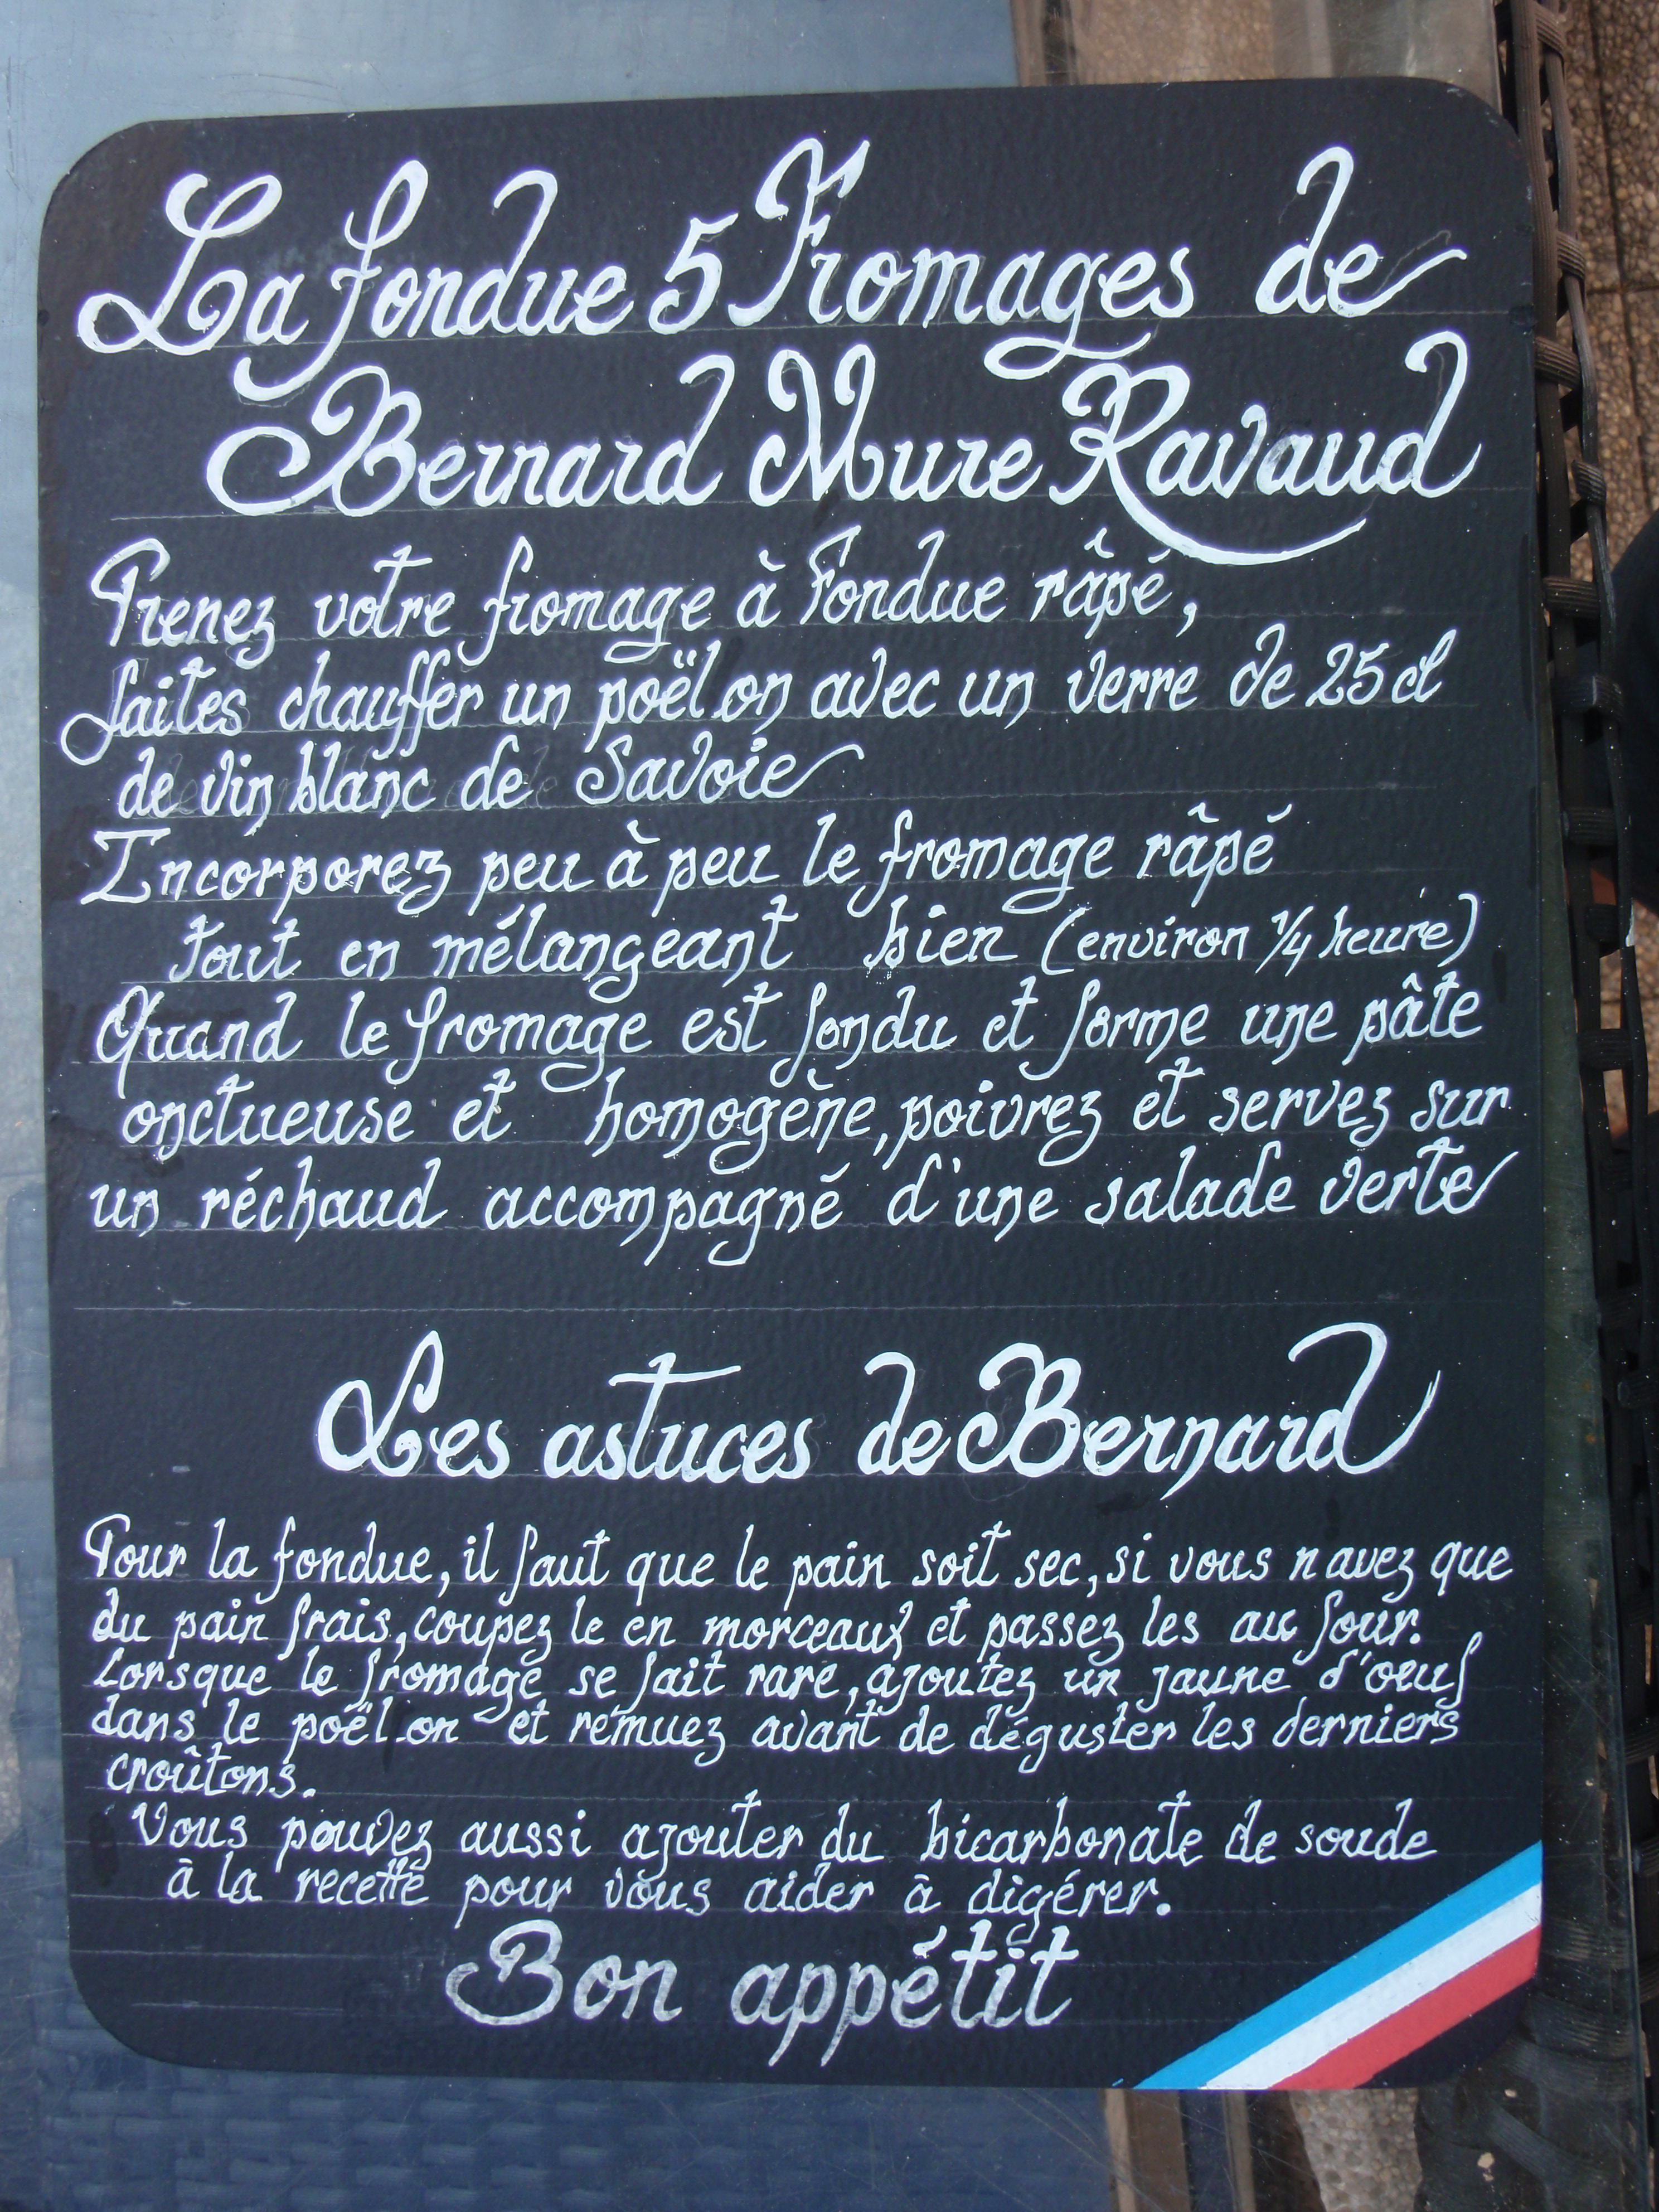 La fondue 5 Fromages de
Bernard Mure Ravaud
Prenez votre fromage à Fondue râpé,
faites chauffer un poëlon avec un verre de 25 cl
de vin blanc de Savoie
Incorporez peu à peu le fromage râpé
tout en mélangeant bien (environ 1/4 heure)
Quand le fromage est fondu et forme une pâte
onctueuse et homogène, poivrez et servez sur
un réchaud accompagné d'une salade verte
Les astuces de Bernard
Pour la fondue, il faut que le pain soit sec, si vous n avez que
du pain frais, coupez le en morceaux et passez les au four.
Lorsque le fromage se fait rare, ajoutez un jaune d'oeuf
dans le poëlon et remuez avant de déguster les derniers
croûtons.
Vous pouvez aussi ajouter du bicarbonate de soude
à la recette pour vous aider à digérer.
Bon appétit